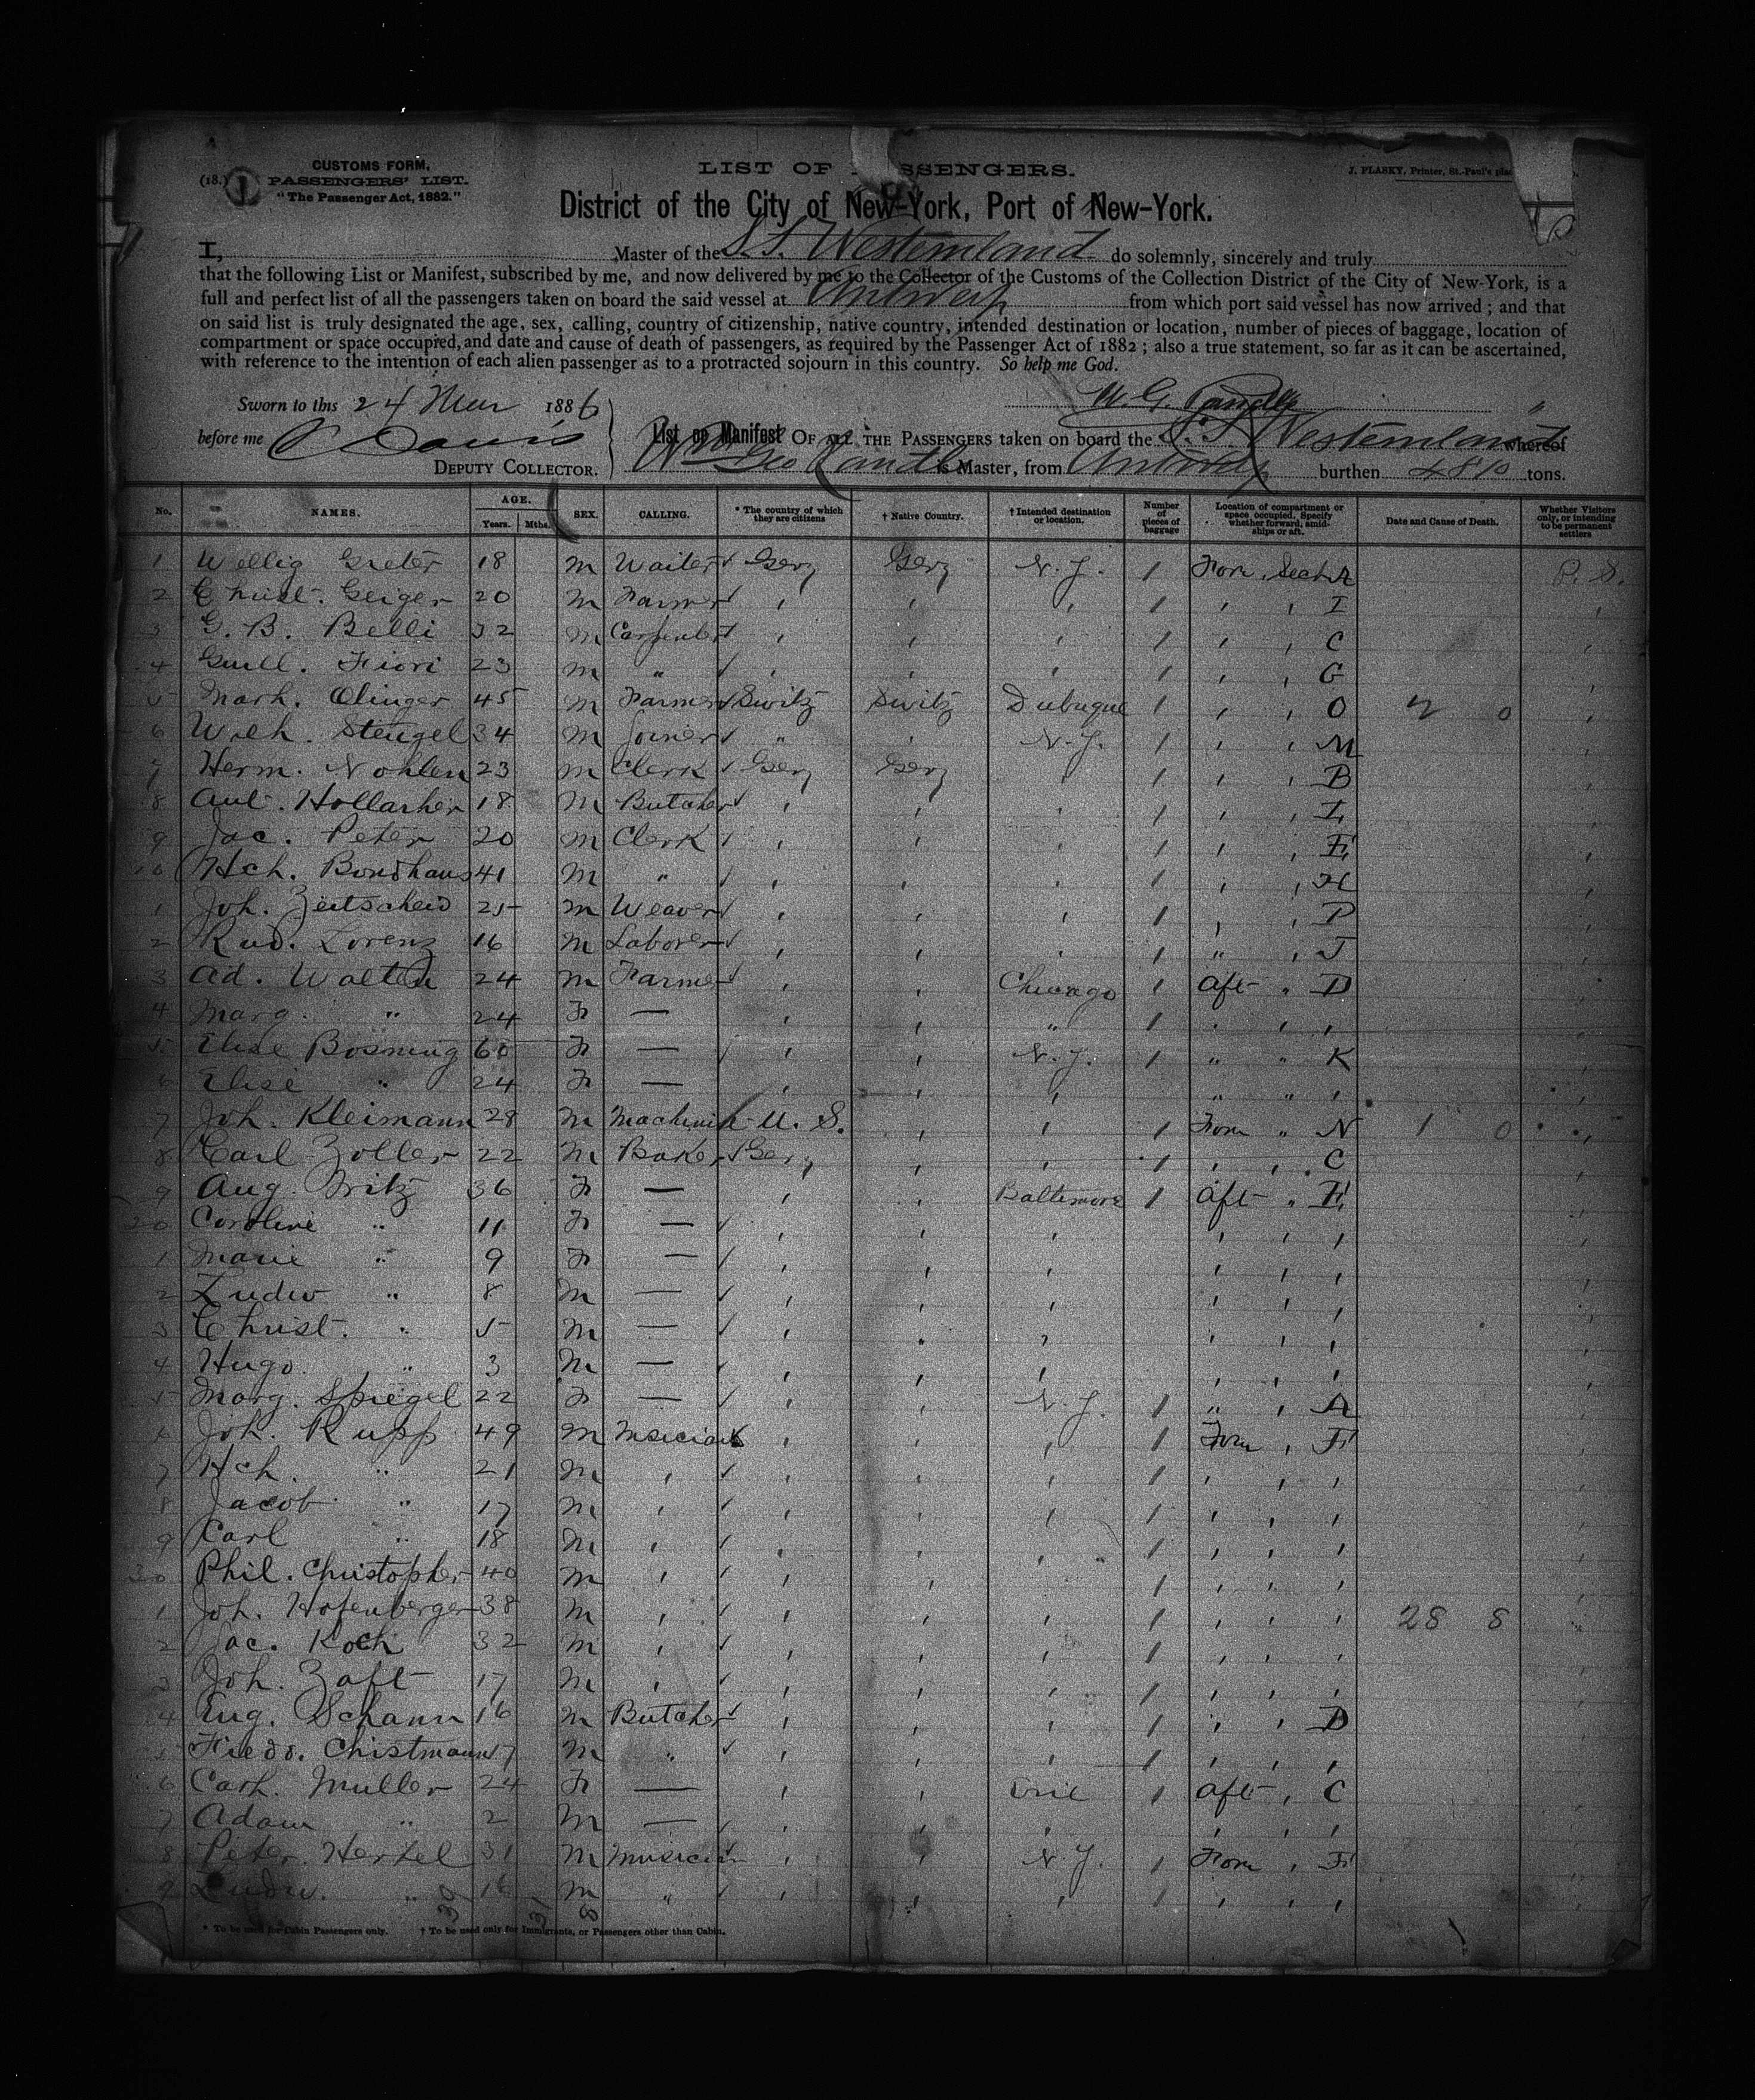 CUSTOMS FORM,
(18.) PASSENGERS' LIST.
"The Passenger Act, 1882."
LIST OF PASSENGERS.
J. PLASKY, Printer, St.-Paul's
District of the City of New-York, Port of New-York.
I, Master of the S.S. Westernland do solemnly, sincerely and truly
that the following List or Manifest, subscribed by me, and now delivered by me to the Collector of the Customs of the Collection District of the City of New-York, is a
full and perfect list of all the passengers taken on board the said vessel at Antwerp from which port said vessel has now arrived; and that
on said list is truly designated the age, sex, calling, country of citizenship, native country, intended destination or location, number of pieces of baggage, location of
compartment or space occupied, and date and cause of death of passengers, as required by the Passenger Act of 1882; also a true statement, so far as it can be ascertained,
with reference to the intention of each alien passenger as to a protracted sojourn in this country. So help me God.
Sworn to this 24 Mar 1886
before me Davis
DEPUTY COLLECTOR.
List or Manifest OF ALL THE PASSENGERS taken on board the S.S. Westernland whereof
is Master, from Antwerp burthen tons.
No. NAMES. AGE. Years. Mths. SEX. CALLING. * The country of which they are citizens † Native Country. † Intended destination or location. Number of pieces of baggage Location of compartment or space occupied. Specify whether forward, amidships or aft. Date and Cause of Death. Whether Visitors only, or intending to be permanent settlers
1 Wellig Greter 18 M Waiter Gery Gery N.Y. 1 Forw. Sect A P. S.
2 Christ. Geiger 20 M Farmer 1 I
3 G. B. Belli 32 M 1 C
4 Guill. Fiori 23 M " 1 G
5 Math. Olinger 45 M Farmer Switz Switz Dubuque 1 O
6 Wilh. Stengel 34 M Joiner " N.Y. 1 M
7 Herm. Nohlen 23 M Clerk Gery Gery 1 B
8 Ant. Hollacher 18 M Butcher 1 L
9 Jac. Peter 20 M Clerk 1 F
10 Hch. Bondhaus 41 M " 1 H
1 Joh. Zeitscheid 25 M Weaver 1 P
2 Rud. Lorenz 16 M Laborer 1 " J
3 Ad. Walter 24 M Farmer Chicago 1 Aft " D
4 Marg. " 24 F — " 1
5 Elise Bosning 60 F — N.Y. 1 " " K
6 Elise " 24 F — " "
7 Joh. Kleimann 28 M Machinist U. S. 1 Forw " N 1 0
8 Carl Zoller 22 M Baker Gery 1 C
9 Aug. Fritz 36 F — Baltimore 1 Aft " F
20 Caroline " 11 F —
1 Marie " 9 F —
2 Ludw " 8 M —
3 Christ. " 5 M —
4 Hugo " 3 M —
5 Marg. Spiegel 22 F — N.Y. 1 " A
6 Joh. Rupp 49 M Msician 1 Forw F
7 Hch. " 21 M 1
8 Jacob " 17 M 1
9 Carl " 18 M 1
30 Phil. Christopher 40 M 1
1 Joh. Hofenberger 38 M 1 28 8
2 Jac. Koch 32 M 1
3 Joh. Zaft 17 M 1
4 Eug. Schann 16 M Butcher 1 D
5 Friedr. Chistmann 17 M " 1
6 Cath. Muller 24 F — Erie 1 Aft C
7 Adam " 2 M —
8 Peter Hertel 31 M Musician N.Y. 1 Forw F
9 Ludw. " 16 M " 1
* To be used for Cabin Passengers only. † To be used only for Immigrants, or Passengers other than Cabin.